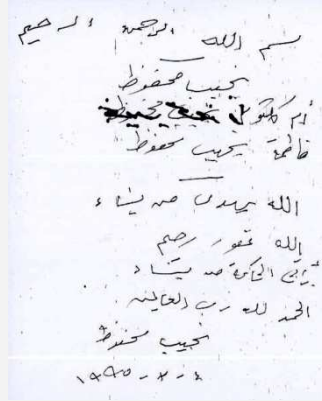 بسم الله الرحمن الرحيم
نجيب محفوظ
أم كلثوم نجيب محفوظ
فاطمة نجيب محفوظ
الله يهدى من يشاء
الله غفور رحيم
يؤتى الحكمة من يشاء
الحمد لله رب العالمين
نجيب محفوظ
١٩٩٥